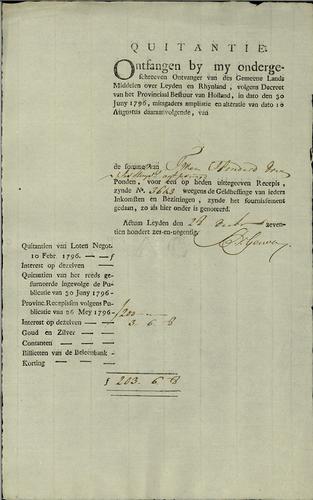 QUITANTIE.
Ontfangen by my onderge-
schreeven Ontvanger van des Gemeene Lands
Middelen over Leyden en Rhynland, volgens Decreet
van het Provinciaal Bestuur van Holland, in dato den 30
Juny 1796, mitsgaders ampliatie en alteratie van dato 10
Augustus daaraanvolgende, van
de somme van Twee Honderd Drie
Ponden, voor een op heden uitgegeeven Recepis,
zynde No. 3613 weegens de Geldheffinge van ieders
Inkomsten en Bezittingen, zynde het fournissement
gedaan, zo als hier onder is genoteerd.
Actum Leyden den 28 zeven-
tien honderd zes-en-negentig.
Quitantien van Loten Negot.
10 Febr. 1796. — — ƒ
Interest op dezelven —
Quitantien van het reeds ge-
fourneerde ingevolge de Pu-
blicatie van 30 Juny 1796 -
Provinc. Recepissen volgens Pu-
blicatie van 26 Mey 1796 - 200 —
Interest op dezelven — — 3. 6. 8
Goud en Zilver — —
Contanten — — —
Billietten van de Beleenbank -
Korting — — —
ƒ 203. 6. 8